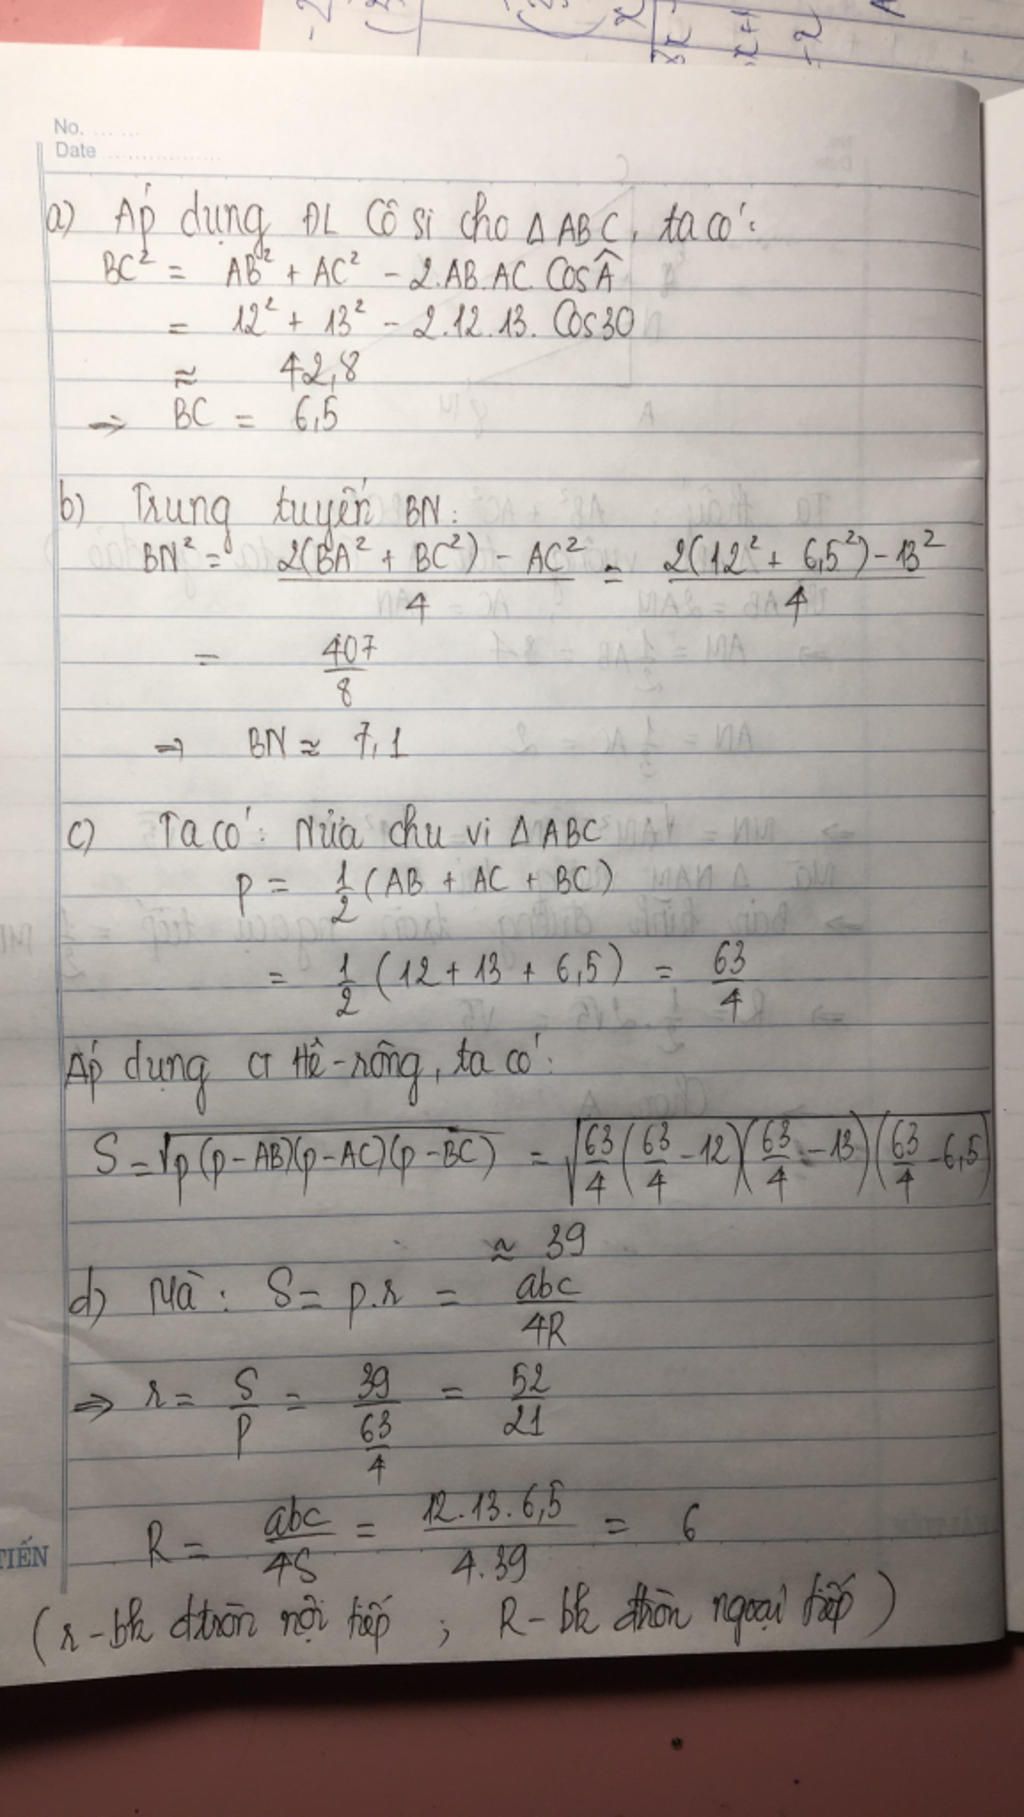 No. ......
Date ..................
a) Áp dụng ĐL Cô si cho Δ ABC, ta có:
BC² = AB² + AC² - 2.AB.AC. Cos Â
= 12² + 13² - 2.12.13. Cos30
≈ 42,8
⇒ BC = 6,5
b) Trung tuyến BN:
BN² = 2(BA² + BC²) - AC² / 4 = 2(12² + 6,5²) - 13² / 4
= 407/8
⇒ BN ≈ 7,1
c) Ta có: Nửa chu vi Δ ABC
p = 1/2 (AB + AC + BC)
= 1/2 (12 + 13 + 6,5) = 63/4
Áp dụng CT Hê-rông, ta có:
S = √p(p-AB)(p-AC)(p-BC) = √63/4 (63/4 - 12)(63/4 - 13)(63/4 - 6,5)
≈ 39
d) Mà: S = p.r = abc/4R
⇒ r = S/p = 39/(63/4) = 52/21
R = abc/4S = 12.13.6,5/4.39 = 6
TIẾN
(r - bk đtròn nội tiếp ; R - bk đtròn ngoại tiếp)